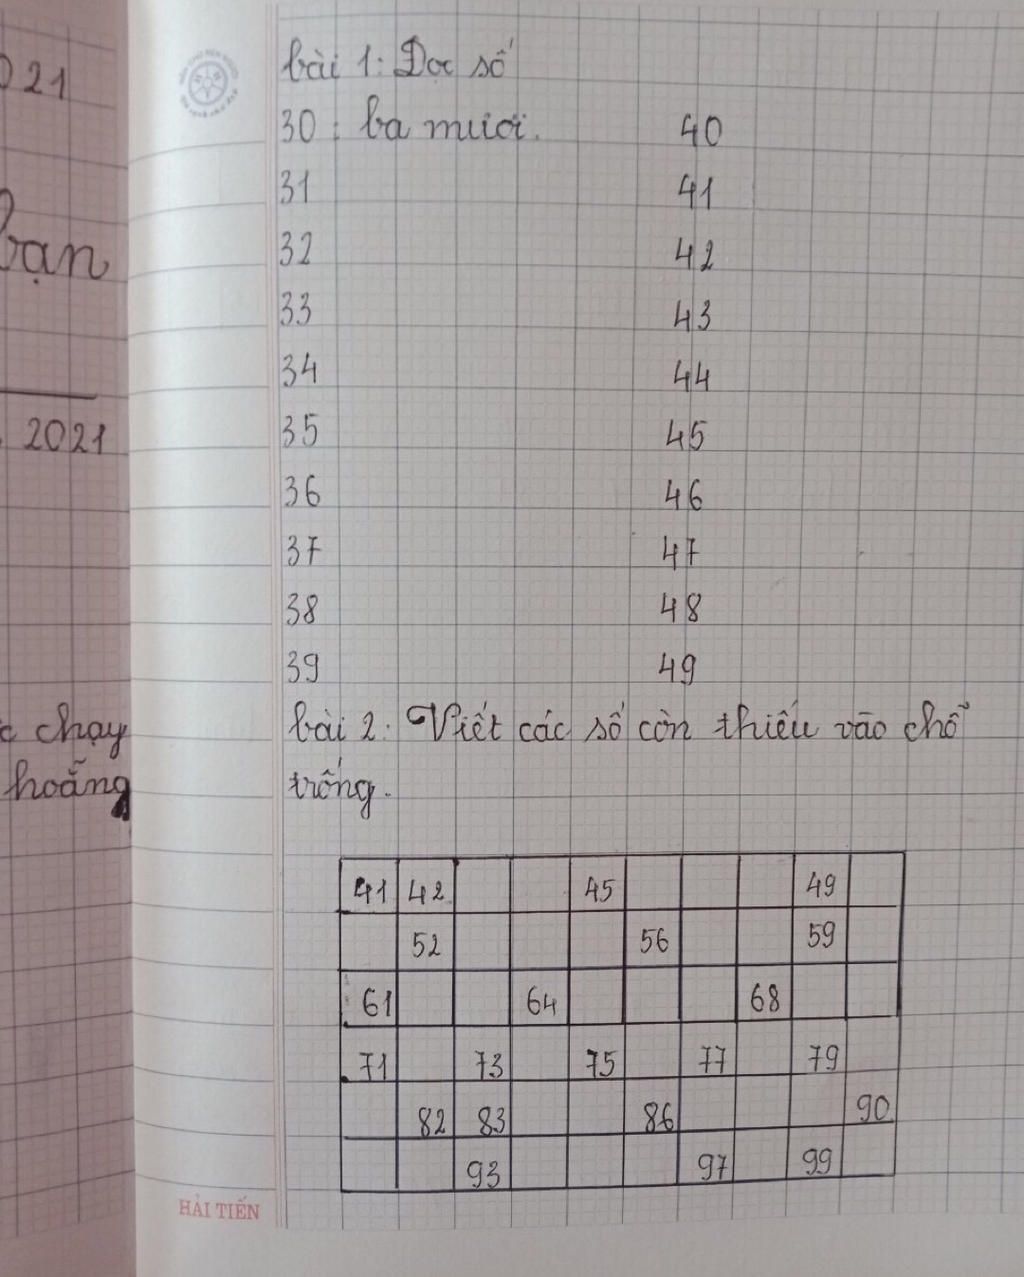 021
bạn
2021
chạy
hoẵng
bài 1: Đọc số
30: ba mươi. 40
31 41
32 42
33 43
34 44
35 45
36 46
37 47
38 48
39 49
bài 2: Viết các số còn thiếu vào chỗ
trống.
41 42 45 49
52 56 59
61 64 68
71 73 75 77 79
82 83 86 90
93 97 99
HẢI TIẾN